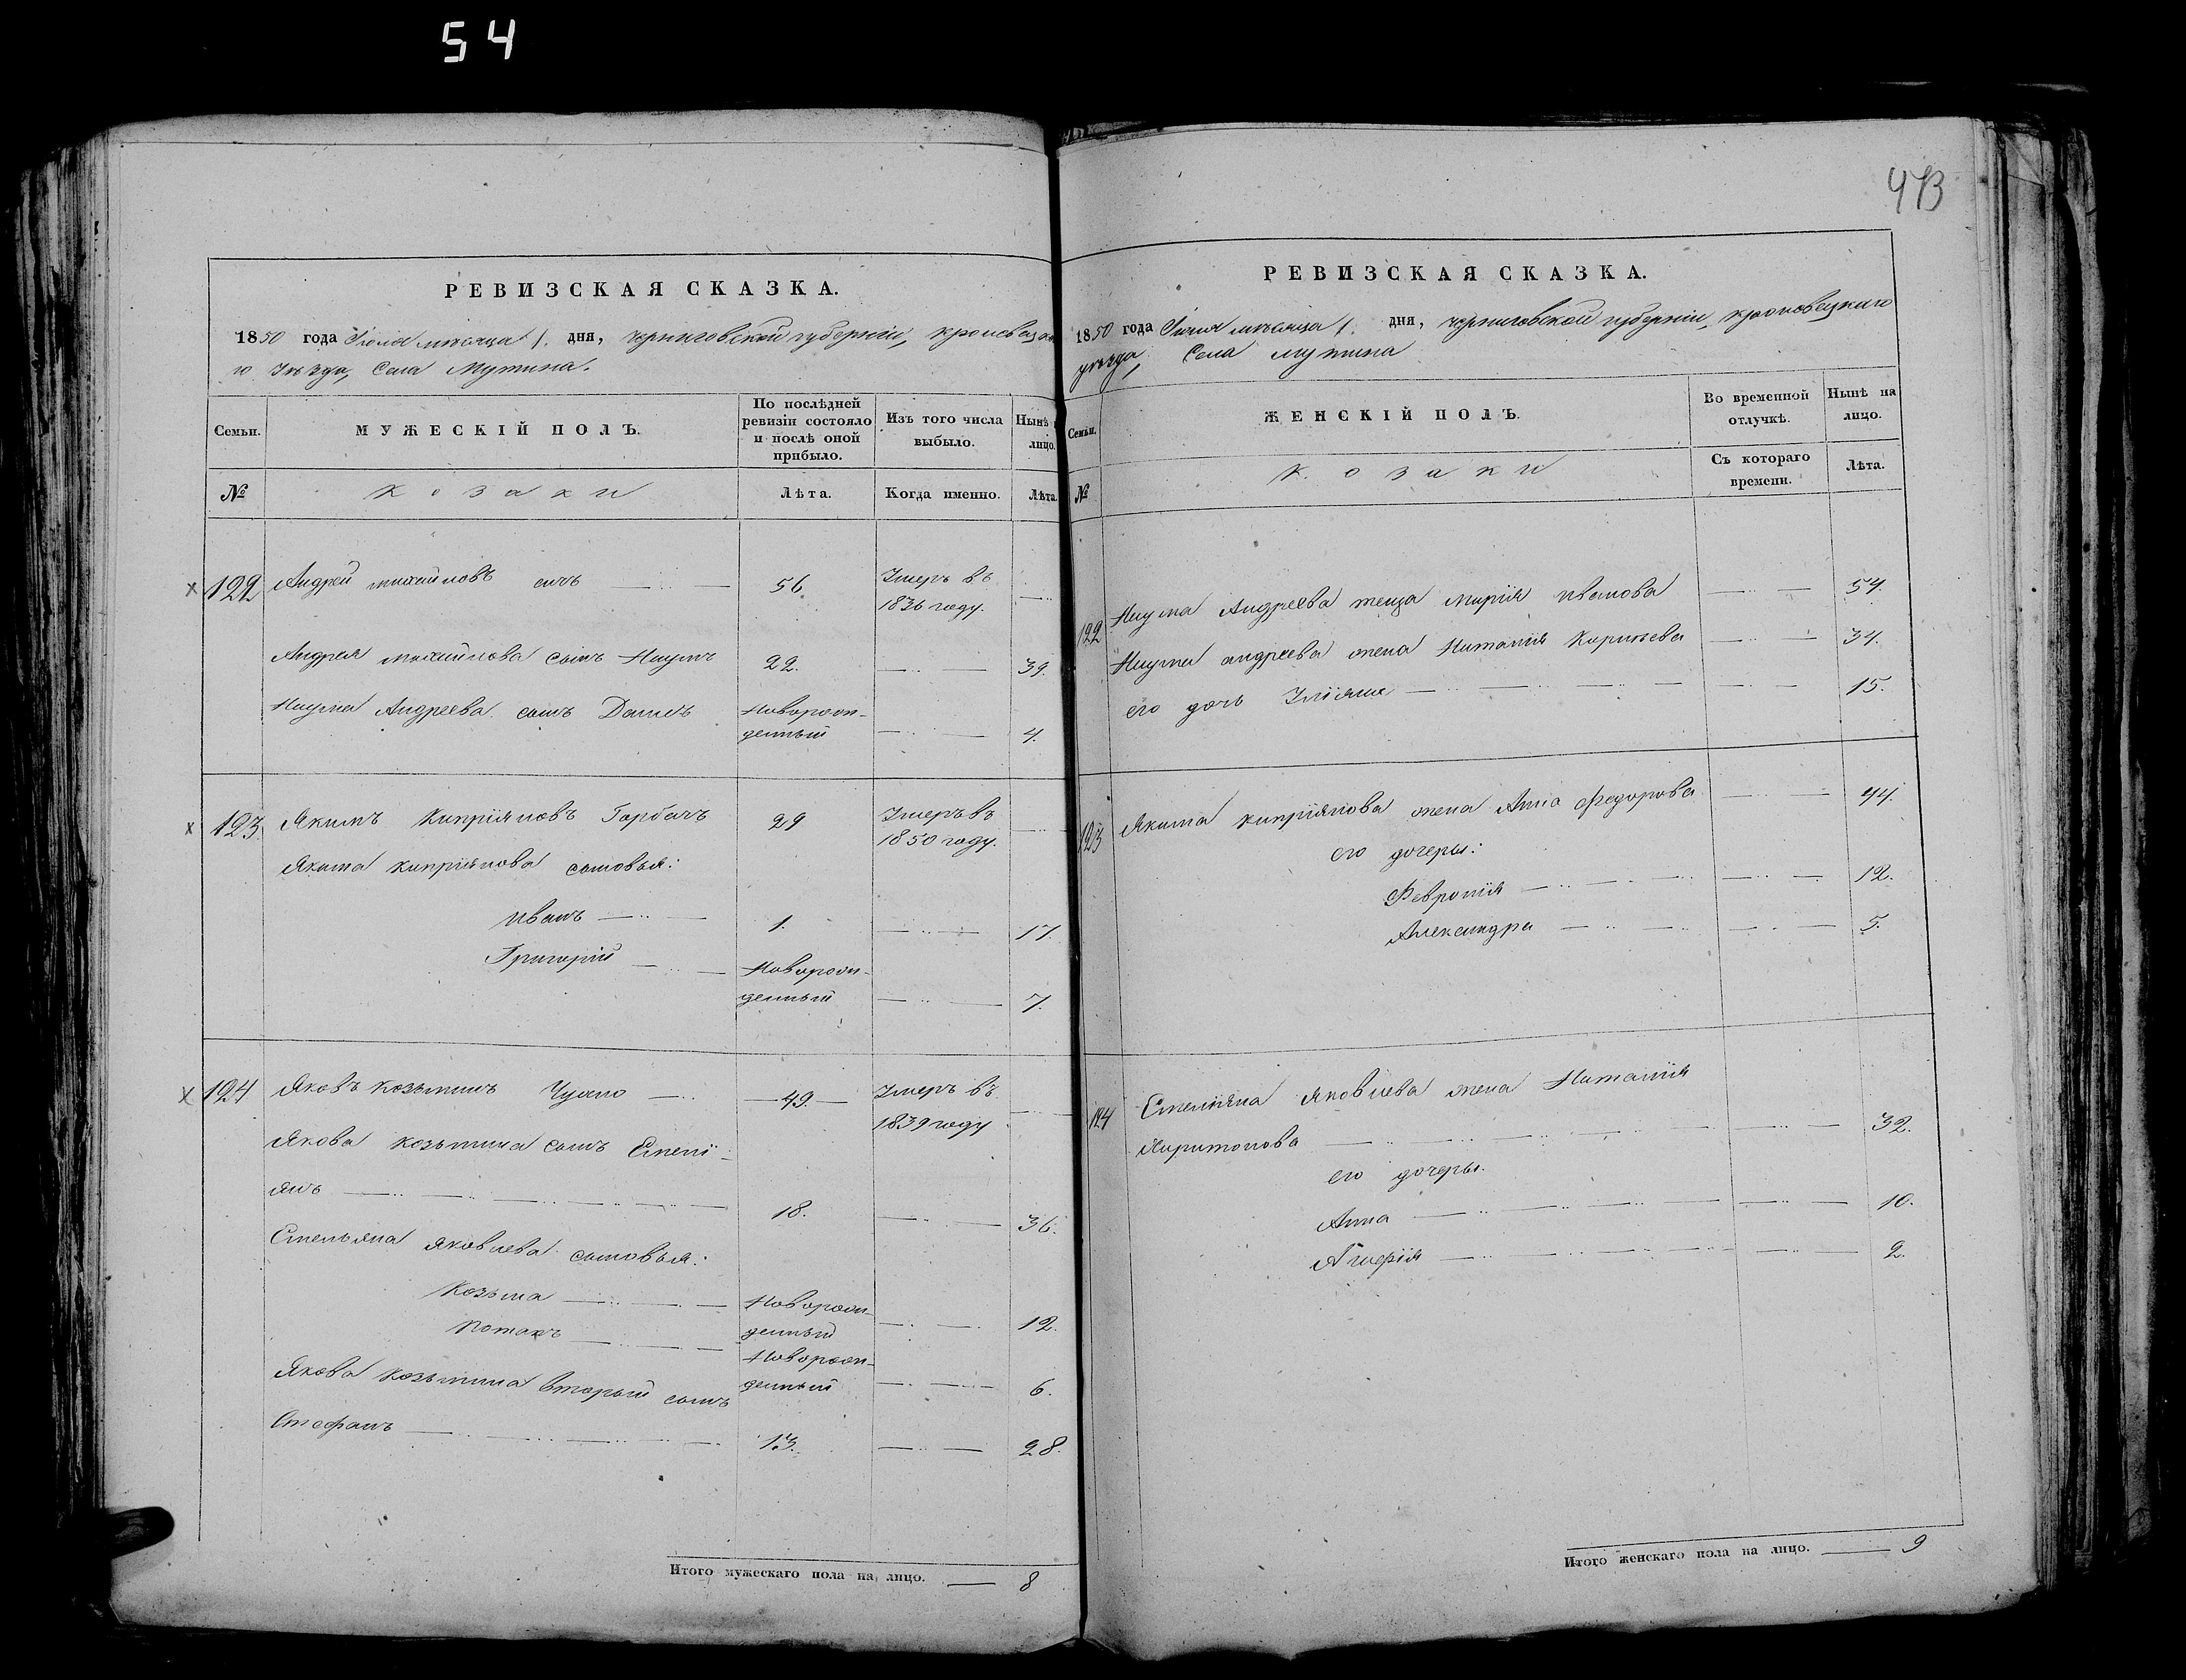 54
473
РЕВИЗСКАЯ СКАЗКА.
1850 года Іюля мѣсяца 1. дня, Черниговской губерніи, кролевецка
го Уѣзда, Села Мутина.
Семьи.
МУЖЕСКІЙ ПОЛЪ.
По послѣдней ревизіи состояло и послѣ оной прибыло.
Изъ того числа выбыло.
Нынѣ лицо.
№
козаки
Лѣта.
Когда именно.
Лѣта.
122 Андрей михайловъ сынъ 56. Умеръ въ
1836 году.
Андрея михайлова сынъ Наумъ 22. 39.
Наума Андреева сынъ Новорож-
денный 4.
123 Якимъ Кипріяновъ Горбачъ 29 Умеръ въ
1850 году.
Якима кипріянова сыновья:
Иванъ 1. 17.
Григорій Новорож-
денный 7.
124 Яковъ козьминъ 49. Умеръ въ
1839 году
Якова козьмина сынъ Емелі-
янъ 18. 36.
Емельяна яковлева сыновья:
Козьма Новорож-
денный 12.
Потапъ Новорож-
денный 6.
Якова козьмина вторый сынъ
Стефанъ 13. 28.
Итого мужескаго пола на лицо. 8
РЕВИЗСКАЯ СКАЗКА.
1850 года Іюля мѣсяца 1. дня, черниговской губерніи, кролевецкаго
уѣзда, Села мутина
Семьи.
ЖЕНСКІЙ ПОЛЪ.
Во временной отлучкѣ.
Нынѣ на лицо.
№
козаки
Съ котораго времени.
Лѣта.
122 Наума Андреева теща Марія иванова 54.
Наума андреева жена Наталія 34.
его дочь Уліяна 15.
123 Якима кипріянова жена Анна Федорова 44.
его дочеры:
Февронія 12.
Александра 5.
124 Емеліяна Яковлева жена Наталія
Харитонова 32.
его дочеры.
Анна 10.
Гликерія 2.
Итого женскаго пола на лицо. 9